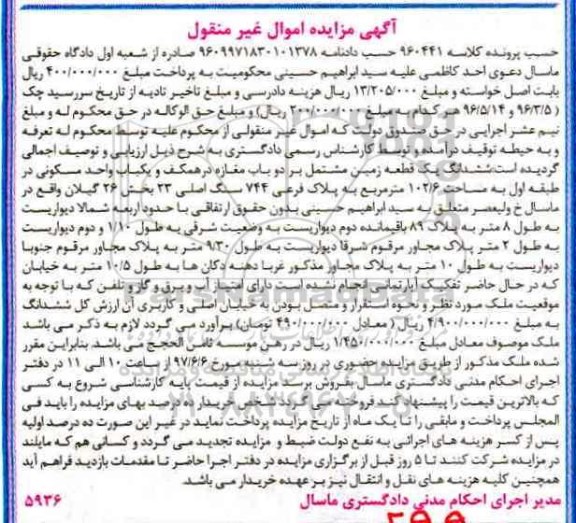 آگهی مزایده اموال غیر منقول
حسب پرونده کلاسه ۹۶۰۴۴۱ حسب دادنامه ۹۶۰۹۹۷۱۸۳۰۱۰۱۳۷۸ صادره از شعبه اول دادگاه حقوقی
ماسال دعوی احد کاظمی علیه سید ابراهیم حسینی محکومیت به پرداخت مبلغ ۴۰۰/۰۰۰/۰۰۰ ریال
بابت اصل خواسته و مبلغ ۱۳/۲۰۵/۰۰۰ ریال هزینه دادرسی و مبلغ تاخیر تادیه از تاریخ سررسید چک
( ۹۶/۳/۵ و ۹۶/۵/۱۴ هر کدام به مبلغ ۲۰۰/۰۰۰/۰۰۰ ریال) و مبلغ حق الوکاله در حق محکوم له و مبلغ
نیم عشر اجرایی در حق صندوق دولت که اموال غیر منقولی از محکوم علیه توسط محکوم له تعرفه
و به حیطه توقیف درآمده و توسط کارشناس رسمی دادگستری به شرح ذیل ارزیابی و توصیف اجمالی
گردیده است:ششدانگ یک قطعه زمین مشتمل بر دو باب مغازه در همکف و یکباب واحد مسکونی در
طبقه اول به مساحت ۱۰۲/۶ مترمربع به پلاک فرعی ۷۴۴ سنگ اصلی ۲۳ بخش ۲۶ گیلان واقع در
ماسال خ ولیعصر متعلق به سید ابراهیم حسینی بدون حقوق ارتفاقی با حدود اربعه شمالا دیواریست
به طول ۸ متر به پلاک ۸۹ باقیمانده دوم دیواریست به وضعیت شرقی به طول ۱/۱۰ و دوم دیواریست
به طول ۲ متر پلاک مجاور مرقوم شرقا دیواریست به طول ۹/۳۰ متر به پلاک مجاور مرقوم جنوبا
دیواریست به طول ۱۰ متر به پلاک مجاور مذکور غربا دهنه دکان ها به طول ۱۰/۵ متر به خیابان
که در حال حاضر تفکیک آپارتمانی انجام نشده است دارای امتیاز آب و برق و گاز و تلفن که با توجه به
موقعیت ملک مورد نظر و نحوه استقرار و متصل بودن به خیابان اصلی و کاربری آن ارزش کل ششدانگ
به مبلغ ۴/۹۰۰/۰۰۰/۰۰۰ ریال ( معادل ۴۹۰/۰۰۰/۰۰۰ تومان) برآورد می گردد لازم به ذکر می باشد
ملک موصوف معادل مبلغ ۱/۴۵۰/۰۰۰/۰۰۰ ریال در رهن موسسه ثامن الحجج می باشد. بنابراین مقرر
شده ملک مذکور از طریق مزایده حضوری در روز سه شنبه مورخ ۹۷/۶/۶ از ساعت ۱۰ الی ۱۱ در دفتر
اجرای احکام مدنی دادگستری ماسال بفروش برسد مزایده از قیمت پایه کارشناسی شروع به کسی
که بالاترین قیمت را پیشنهاد کند فروخته می شود شخص خریدار ده درصد بهای مزایده را باید فی
المجلس پرداخت و مابقی را تا یک ماه از تاریخ مزایده پرداخت نماید در غیر این صورت ده درصد اولیه
پس از کسر هزینه های اجرائی به نفع دولت ضبط و مزایده تجدید می گردد و کسانی هم که مایلند
در مزایده شرکت کنند تا ۵ روز قبل از برگزاری مزایده در دفتر اجرا حاضر تا مقدمات بازدید فراهم آید
همچنین کلیه هزینه های نقل و انتقال نیز بر عهده خریدار می باشد.
مدیر اجرای احکام مدنی دادگستری ماسال ۵۹۳۶